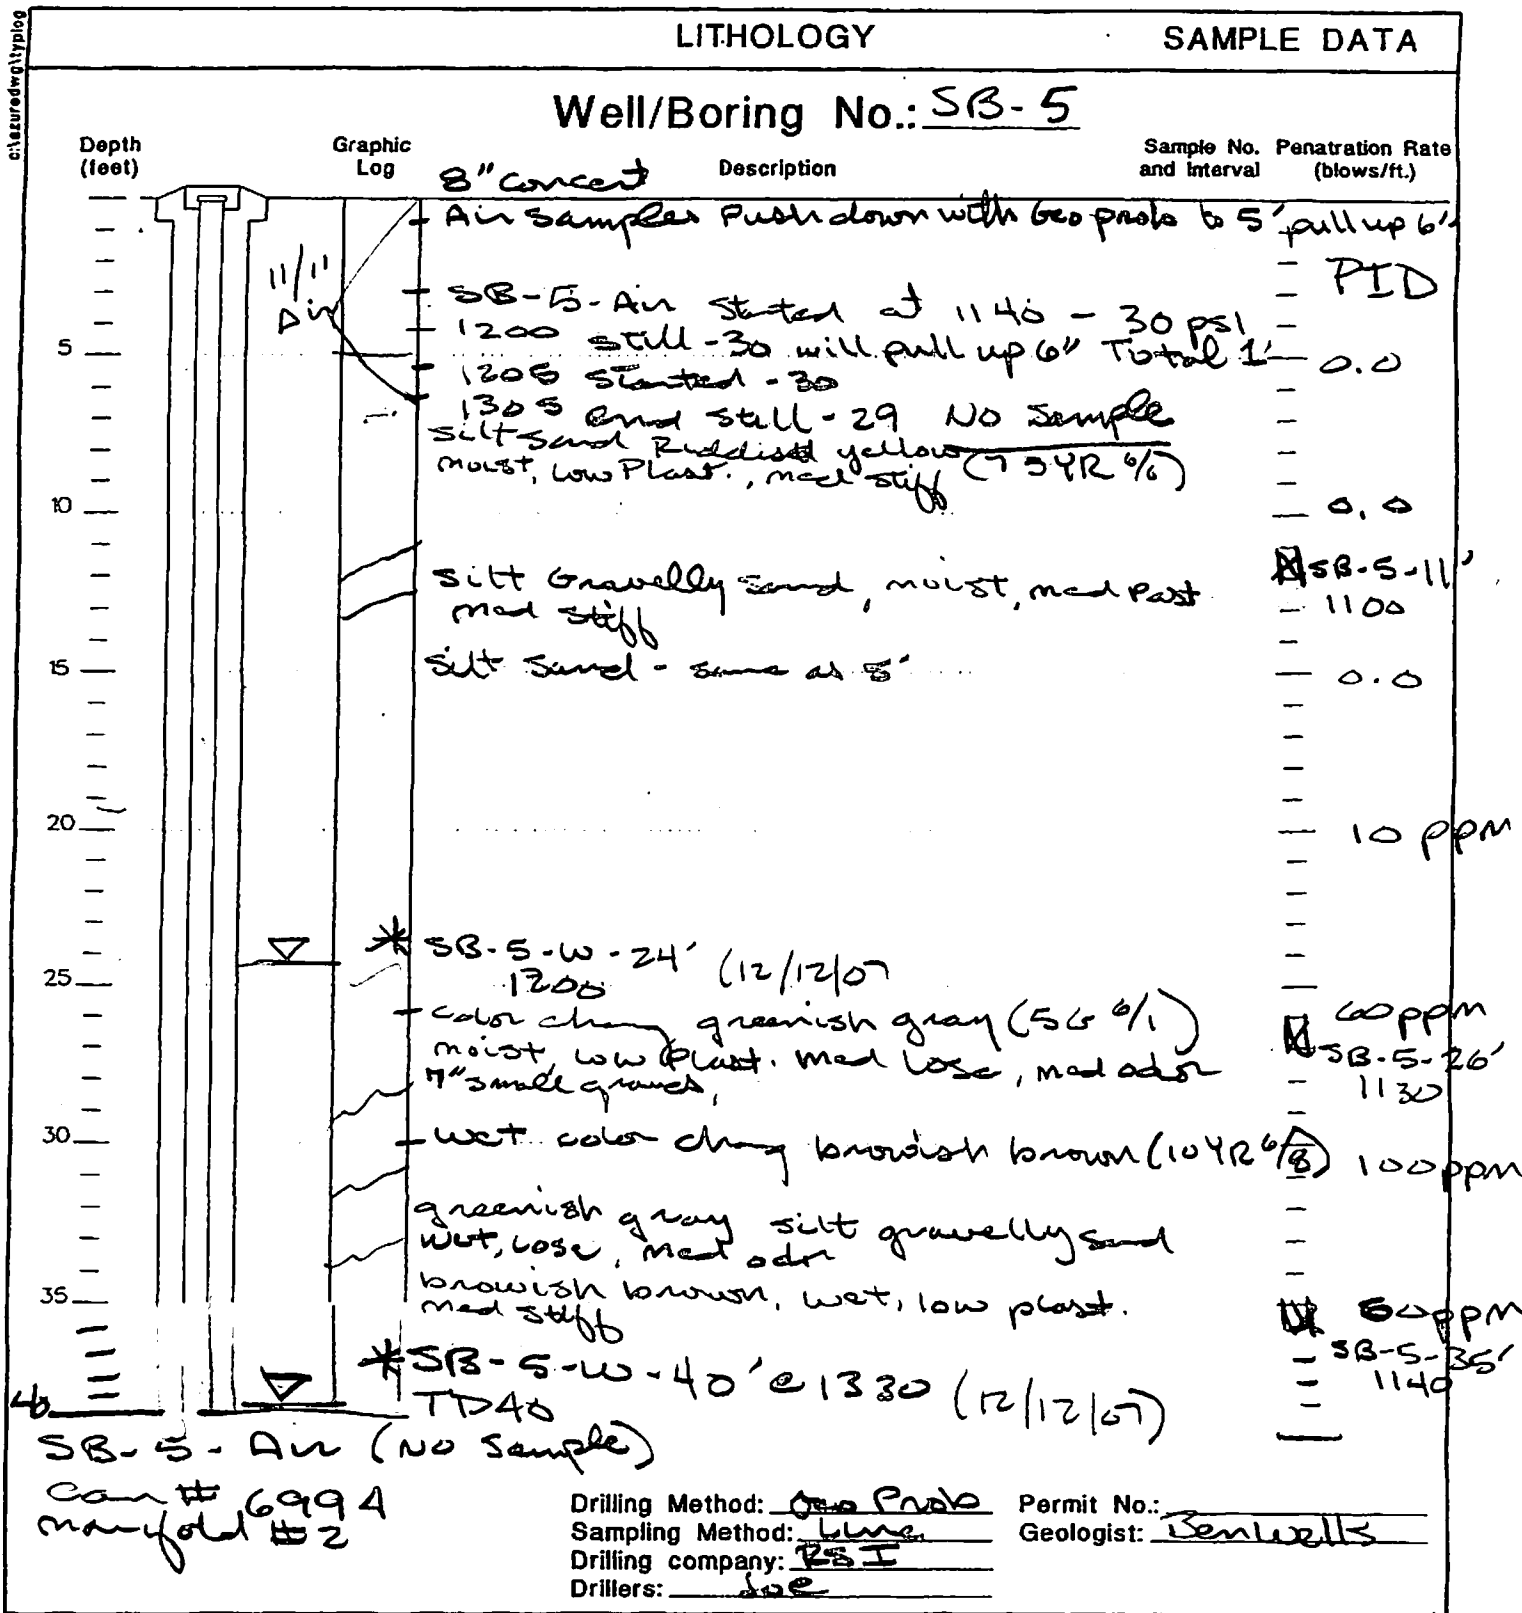 c:\azuredwg\typlog
LITHOLOGY SAMPLE DATA
Well/Boring No.: SB-5
Depth (feet) Graphic Log Description Sample No. and Interval Penatration Rate (blows/ft.)
8" concert
Air Samples Push down with Geo prob to 5' pull up 6"
11/11
Air
PID
SB-5-Air Started at 1140 - 30 psi
1200 still -30 will pull up 6" Total 1'
5 0.0
1205 Started -30
1305 end still -29 No Sample
silt sand Reddish yellow (7 5YR 6/6)
moist, Low Plast., med stiff
10 0.0
SB-5-11'
silt Gravelly sand, moist, med Past
1100
med stiff
15 silt sand - same as 5' 0.0
20 10 ppm
SB-5-W-24' (12/12/07
1200
25
color chang greenish gray (5G 6/1) 60 ppm
moist, low Plast. med lose, med odor SB-5-26'
7" small gravel, 1130
30 wet color chang browish brown (10YR 6/8) 100 ppm
greenish gray silt gravelly sand
wet, lose, med odr
browish brown, wet, low plast.
35 med stiff 60 ppm
SB-5-35'
1140
*SB-5-W-40' @ 1330 (12/12/07)
40 TD40
SB-5-Air (No Sample)
can # 6994
manifold #2
Drilling Method: Geo Prob Permit No.:
Sampling Method: Line Geologist: Ben Wells
Drilling company: RSI
Drillers: Joe